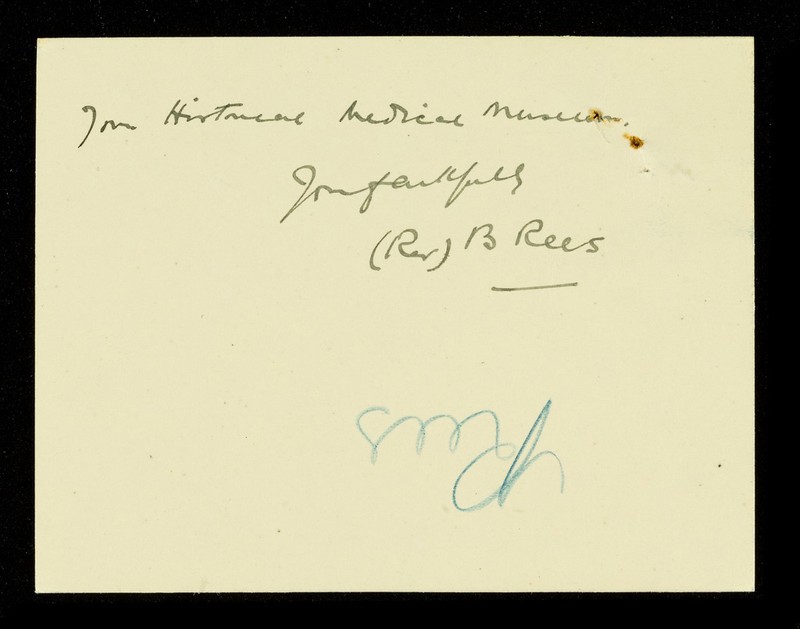 Your Historical Medical Museum.
Yours faithfully
(Rev) B Rees
Rees